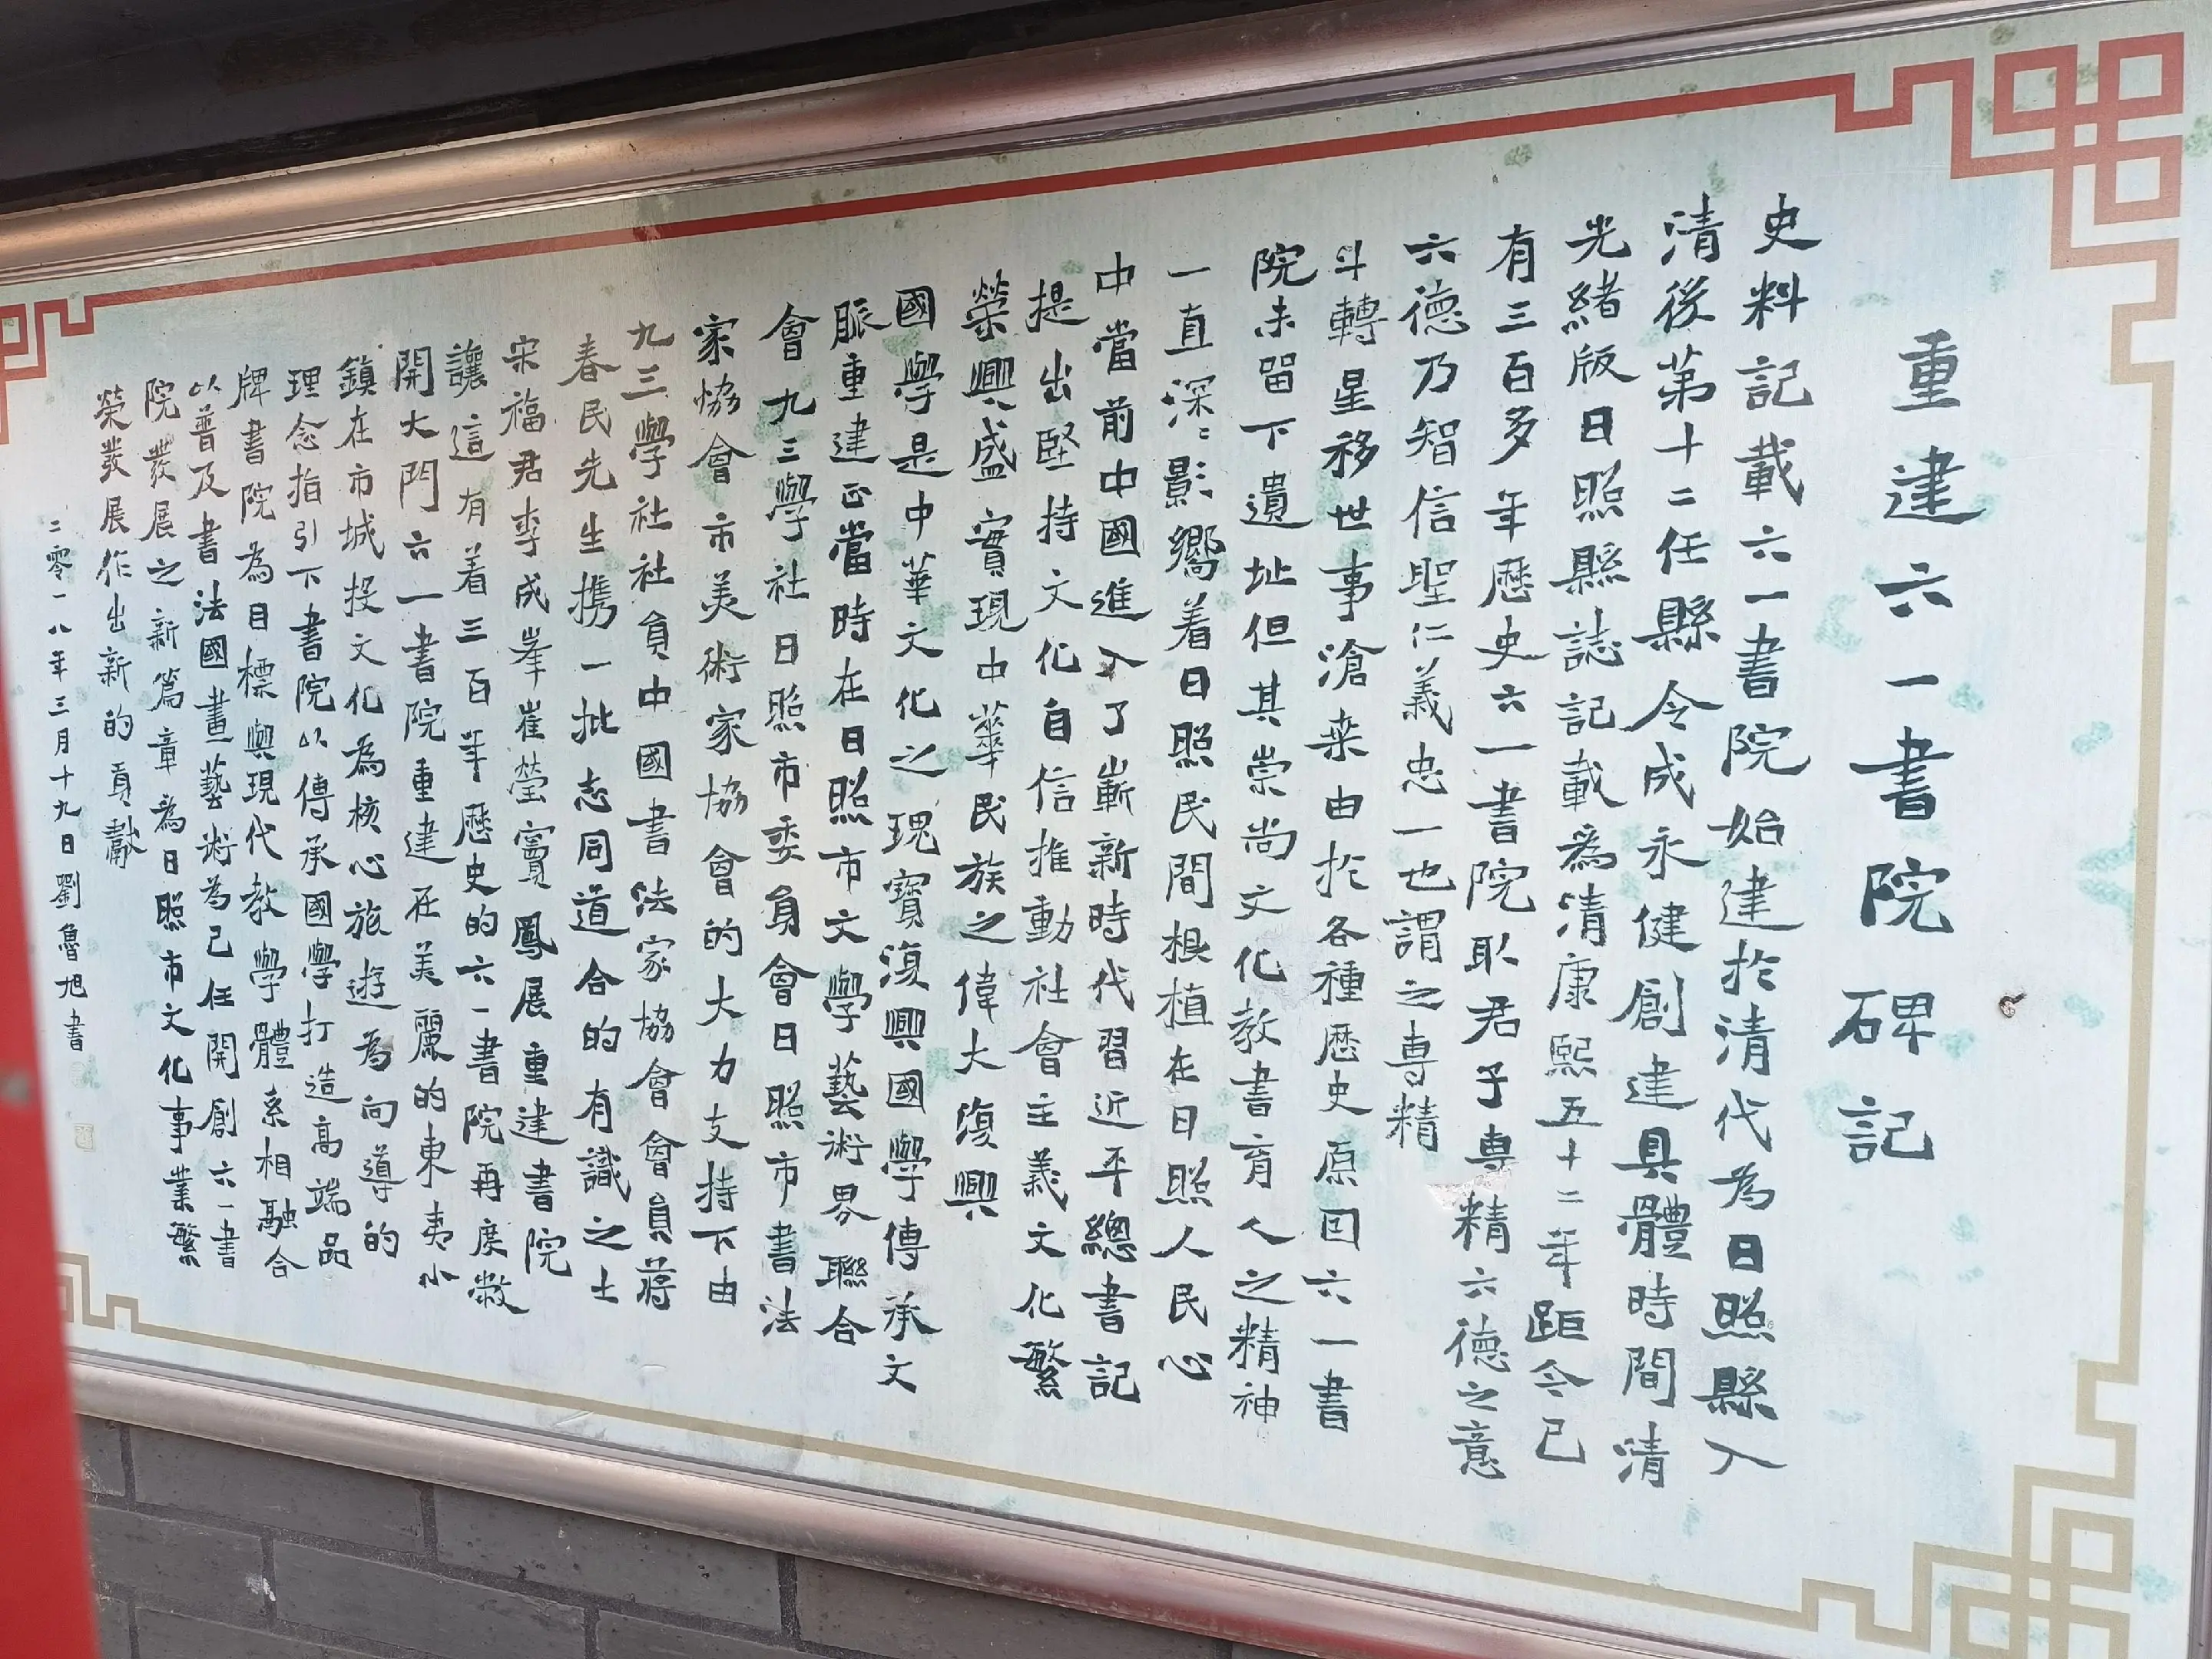 重建六一書院碑記
史料記載六一書院始建於清代為日照縣入
清後第十二任縣令成永健創建具體時間清
光緒版日照縣誌記載為清康熙五十二年距今已
有三百多年歷史六一書院取君子專精六德之意
六德乃智信聖仁義忠一也謂之專精
斗轉星移世事滄桑由於各種歷史原因六一書
院未留下遺址但其崇尚文化教書育人之精神
一直深深影嚮着日照民間根植在日照人民心
中當前中國進入了嶄新時代習近平總書記
提出堅持文化自信推動社會主義文化繁
榮興盛實現中華民族之偉大復興
國學是中華文化之瑰寶復興國學傳承文
脈重建正當時在日照市文學藝術界聯合
會九三學社日照市委員會日照市書法
家協會市美術家協會的大力支持下由
九三學社社員中國書法家協會會員蔣
春民先生携一批志同道合的有識之士
宋福君李成峯崔瑩竇鳳展重建書院
讓這有着三百年歷史的六一書院再度敞
開大門六一書院重建在美麗的東夷小
鎮在市城投文化為核心旅遊為向導的
理念指引下書院以傳承國學打造高端品
牌書院為目標與現代教學體系相融合
以普及書法國畫藝術為己任開創六一書
院發展之新篇章為日照市文化事業繁
榮發展作出新的貢獻
二零一八年三月十九日劉魯旭書